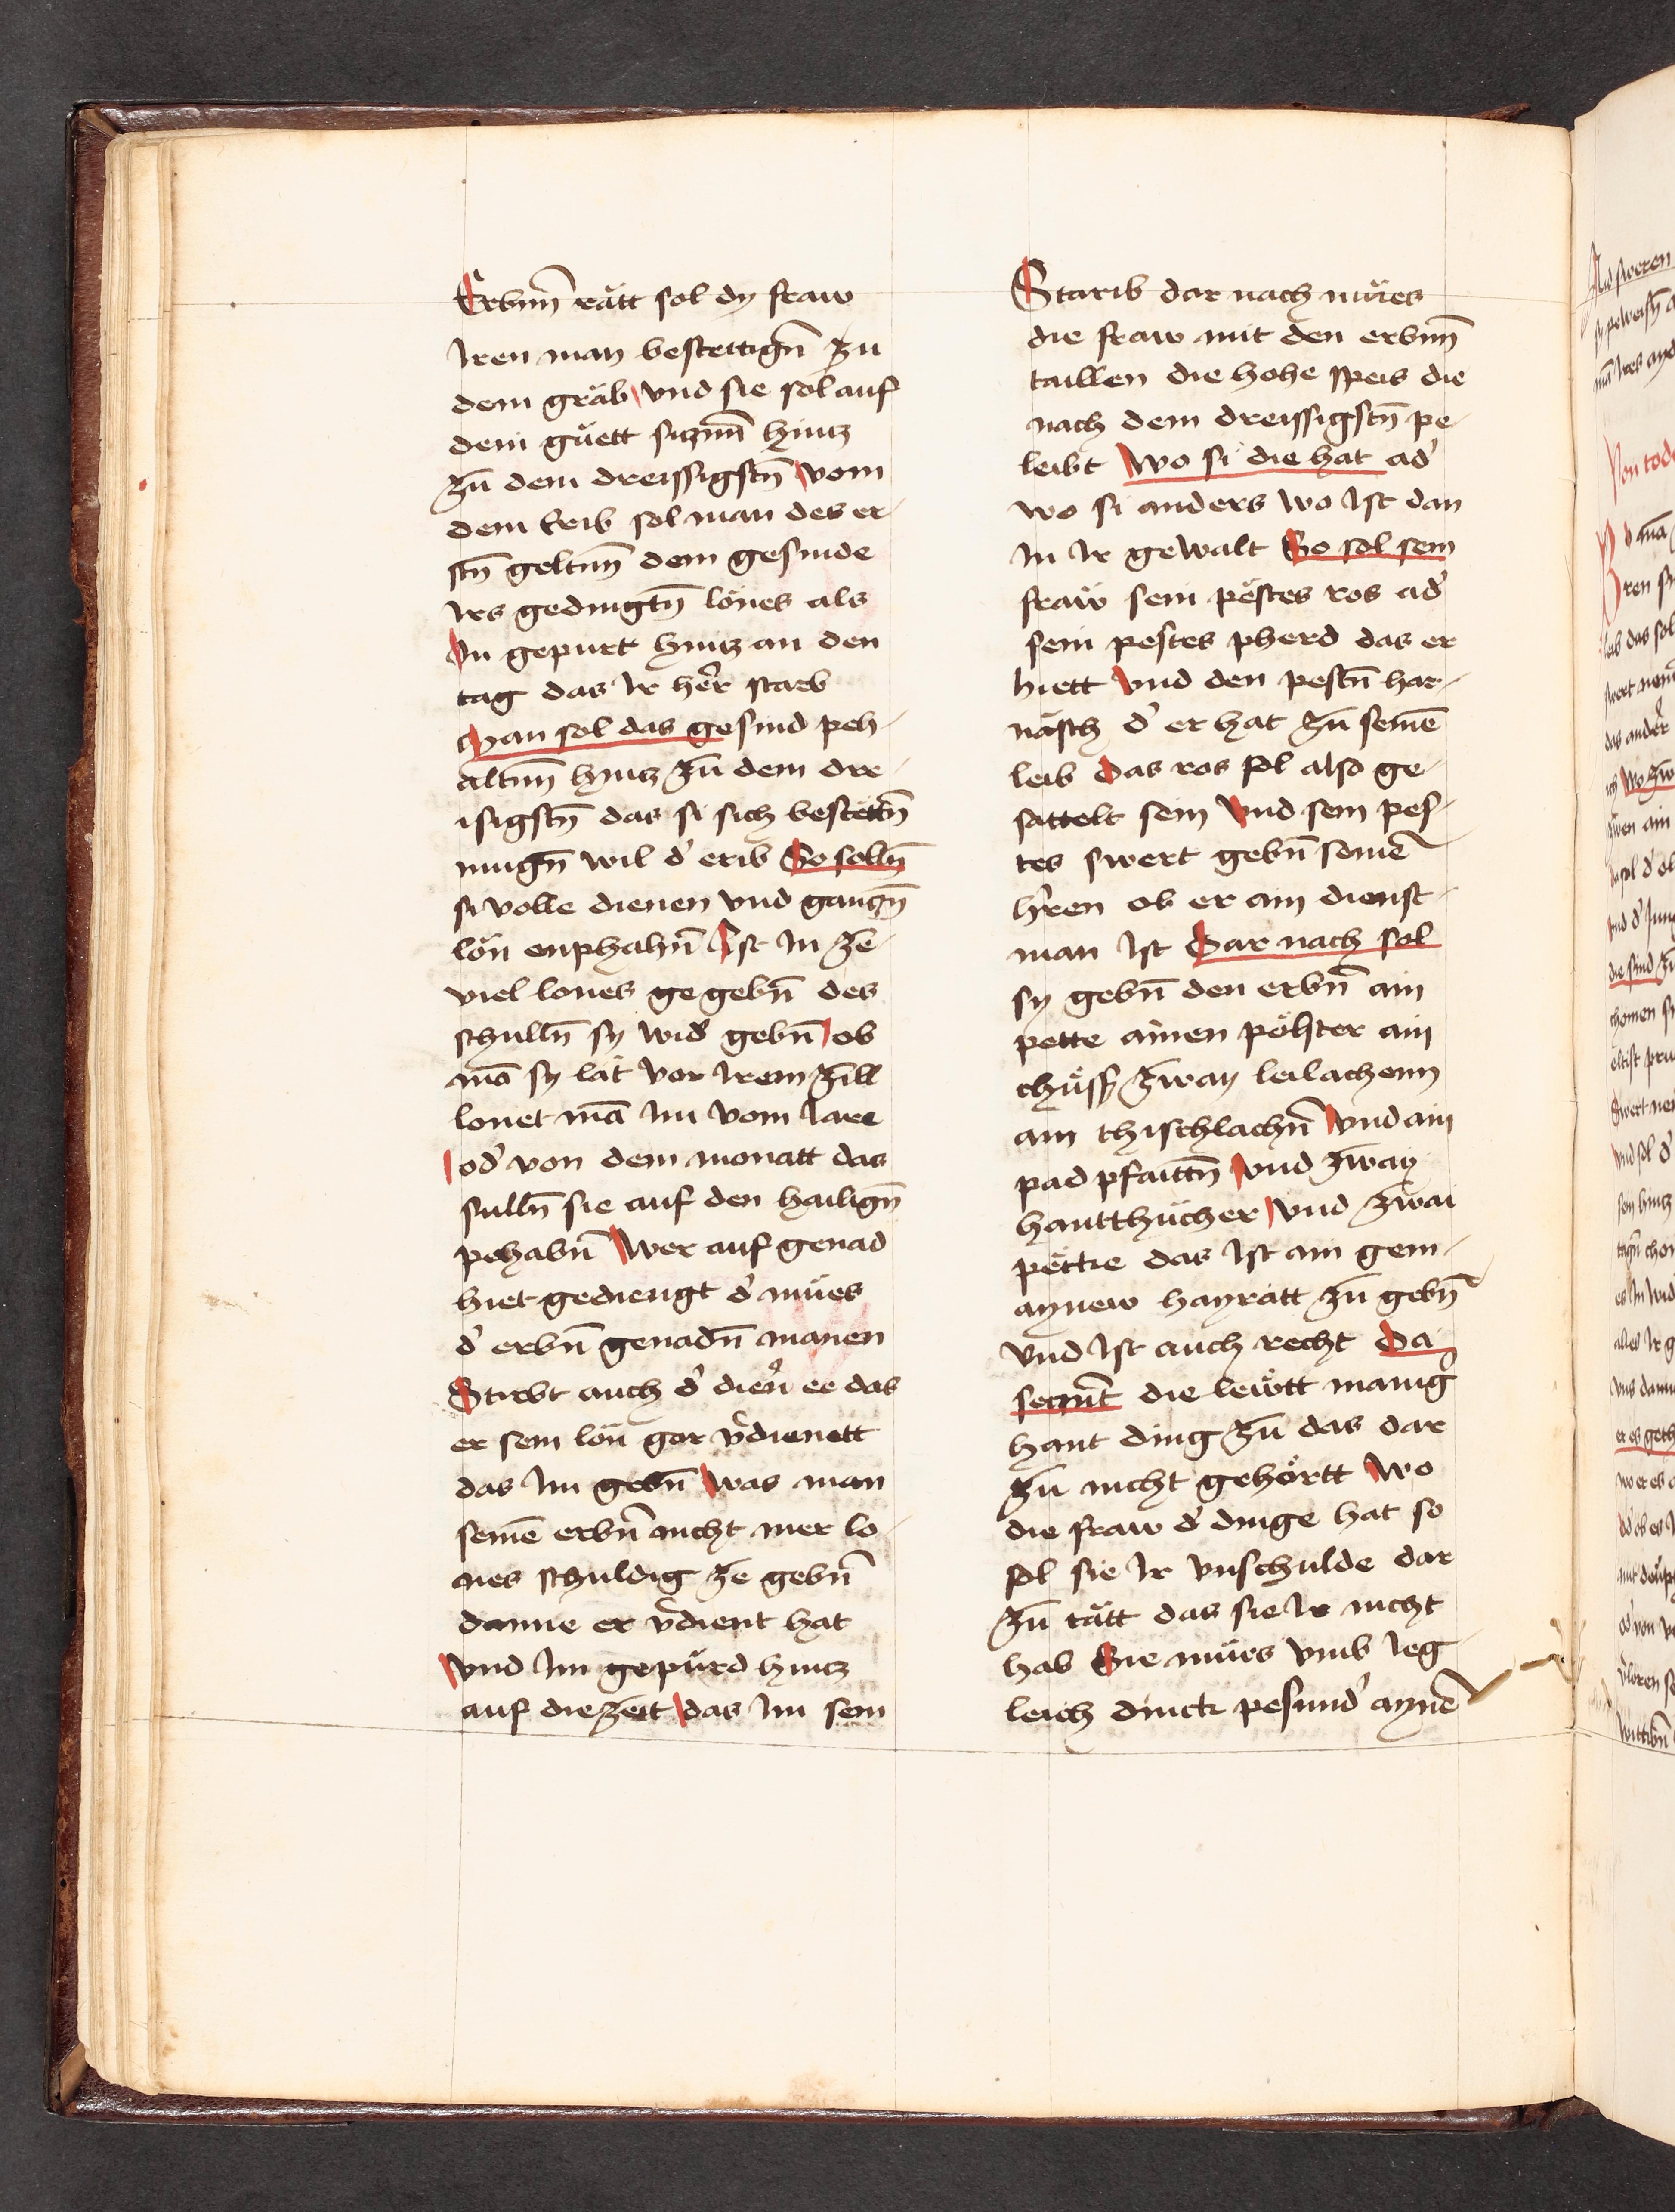 Erbnn̄ rätt sol dy fraw
Iren man bestettign̄ zu
dem gräb vnd sie sol auf
dem gůett sicznn̄ hincz
zū dem dreissigstn̄ vom
dem erib sol man des er-
stn̄ geltnn̄ dem gesinde
Irs gedingtn̄ lönes als
In gepurt hincz an den
tag das Ir her̄ starb
Man sol das gesind peh-
altnn̄ hincz zū dem dre-
isigstn̄ das si sich bestettn̄
mugn̄ wil d' erib So solln̄
si volle dienen vnd ganczn̄
lön enphahn̄ Ist In ze-
viel lones ge gebn̄ des
schulln̄ sy wid' gebn̄ ob
mā sy lät vor Irem zill
lonet mā Im vom Iare
od' von dem monatt das
sulln̄ sie auf den hailign̄
pehabn̄ Wer auf genad
hiet gediengt d' mües
d' erbn̄ genadn̄ manen
Stirbt auch d' dien' ee das
er sein lön gar v̄dienett
das Im gebn̄ was man
seinē erbn̄ nicht mer lo-
nes schuldig ze gebn̄
danne er v̄dient hat
vnd Im gepürd hincz
auf die zeit das Im sein
Starib dar nach mües
die fraw mit den erbnn̄
taillen die hohe speis die
nach dem dreissigstn̄ pe-
leibt Wo si die hat ad'
wo si anders wo Ist dan
In Ir gewalt So sol sein
fraw sein pestes ros ad'
sein pestes pherd das er
hiett vnd den pestn̄ har-
näsch d' er hat zū seinē
leib Das ros sol also ge-
sattelt sein vnd sein pes-
tes swert gebn̄ seinē
hr̄en ob er ain dienst-
man Ist Dar nach sol
sy gebn̄ den erbn̄ ain
pette ainen pölster ain
chüss zway leilachenn
ain thischlachn̄ vnd ain
pad pfaittn̄ vnd zway
hantthücher vnd zwai
pëcke das Ist ain gem-
aynew hayrätt zū gebn̄
vnd Ist auch recht Da
seczn̄t die lewtt manig
hant ding zū das dar
zū nicht gehörtt Wo
die fraw d' dinge hat so
sol sie Ir vnschulde dar
zū tätt das sie Ir nicht
hab Sie mües vmb Ieg-
leich dinck pesund' aynē